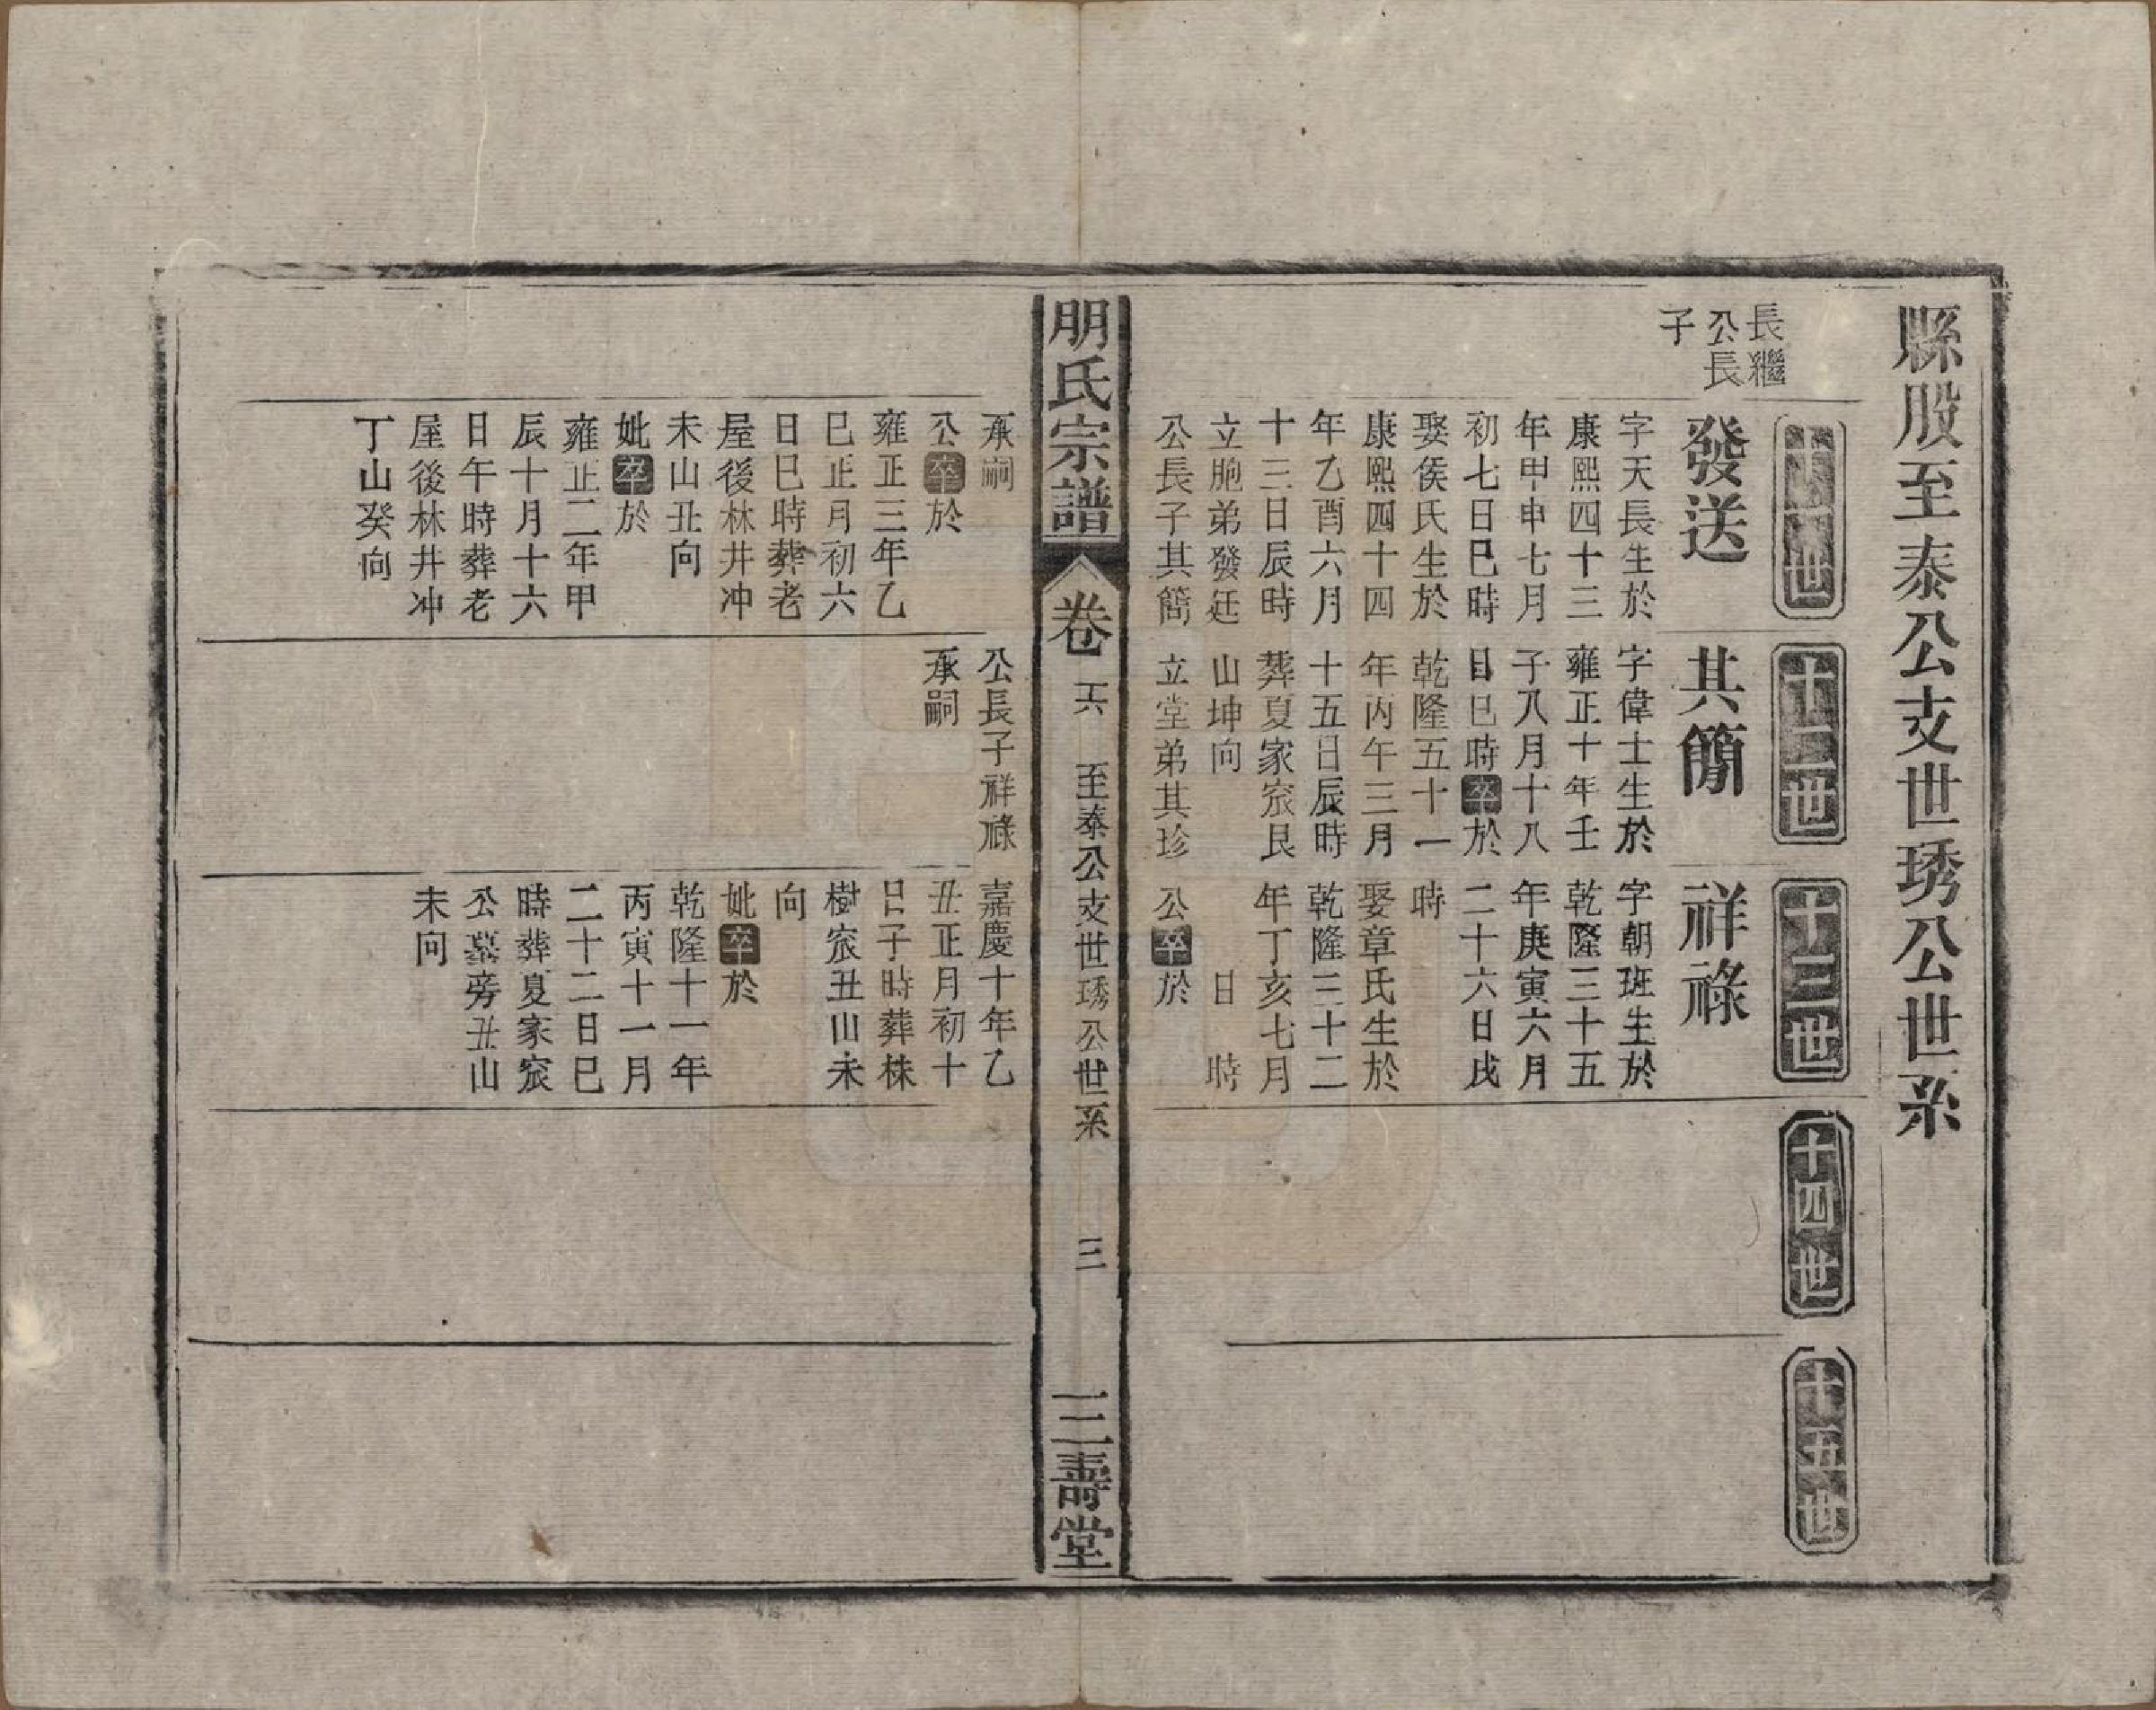 縣股至泰公支世琇公世系
十一世
長繼
公長
子
發送
字天長生於
康熙四十三
年甲申七月
初七日巳時
娶侯氏生於
康熙四十四
年乙酉六月
十三日辰時
立胞弟發廷
公長子其簡
承嗣
公卒於
雍正三年乙
巳正月初六
日巳時葬老
屋後林井冲
未山丑向
妣卒於
雍正二年甲
辰十月十六
日午時葬老
屋後林井冲
丁山癸向
十二世
其簡
字偉士生於
雍正十年壬
子八月十八
日巳時卒於
乾隆五十一
年丙午三月
十五日辰時
葬夏家宸艮
山坤向
立堂弟其珍
公長子祥祿
承嗣
十三世
祥祿
字朝班生於
乾隆三十五
年庚寅六月
二十六日戌
時
娶章氏生於
乾隆三十二
年丁亥七月
日 時
公卒於
嘉慶十年乙
丑正月初十
日子時葬株
樹宸丑山未
向
妣卒於
乾隆十一年
丙寅十一月
二十二日巳
時葬夏家宸
公墓旁丑山
未向
十四世
十五世
朋氏宗譜
卷六
至泰公支世琇公世系
三
三壽堂